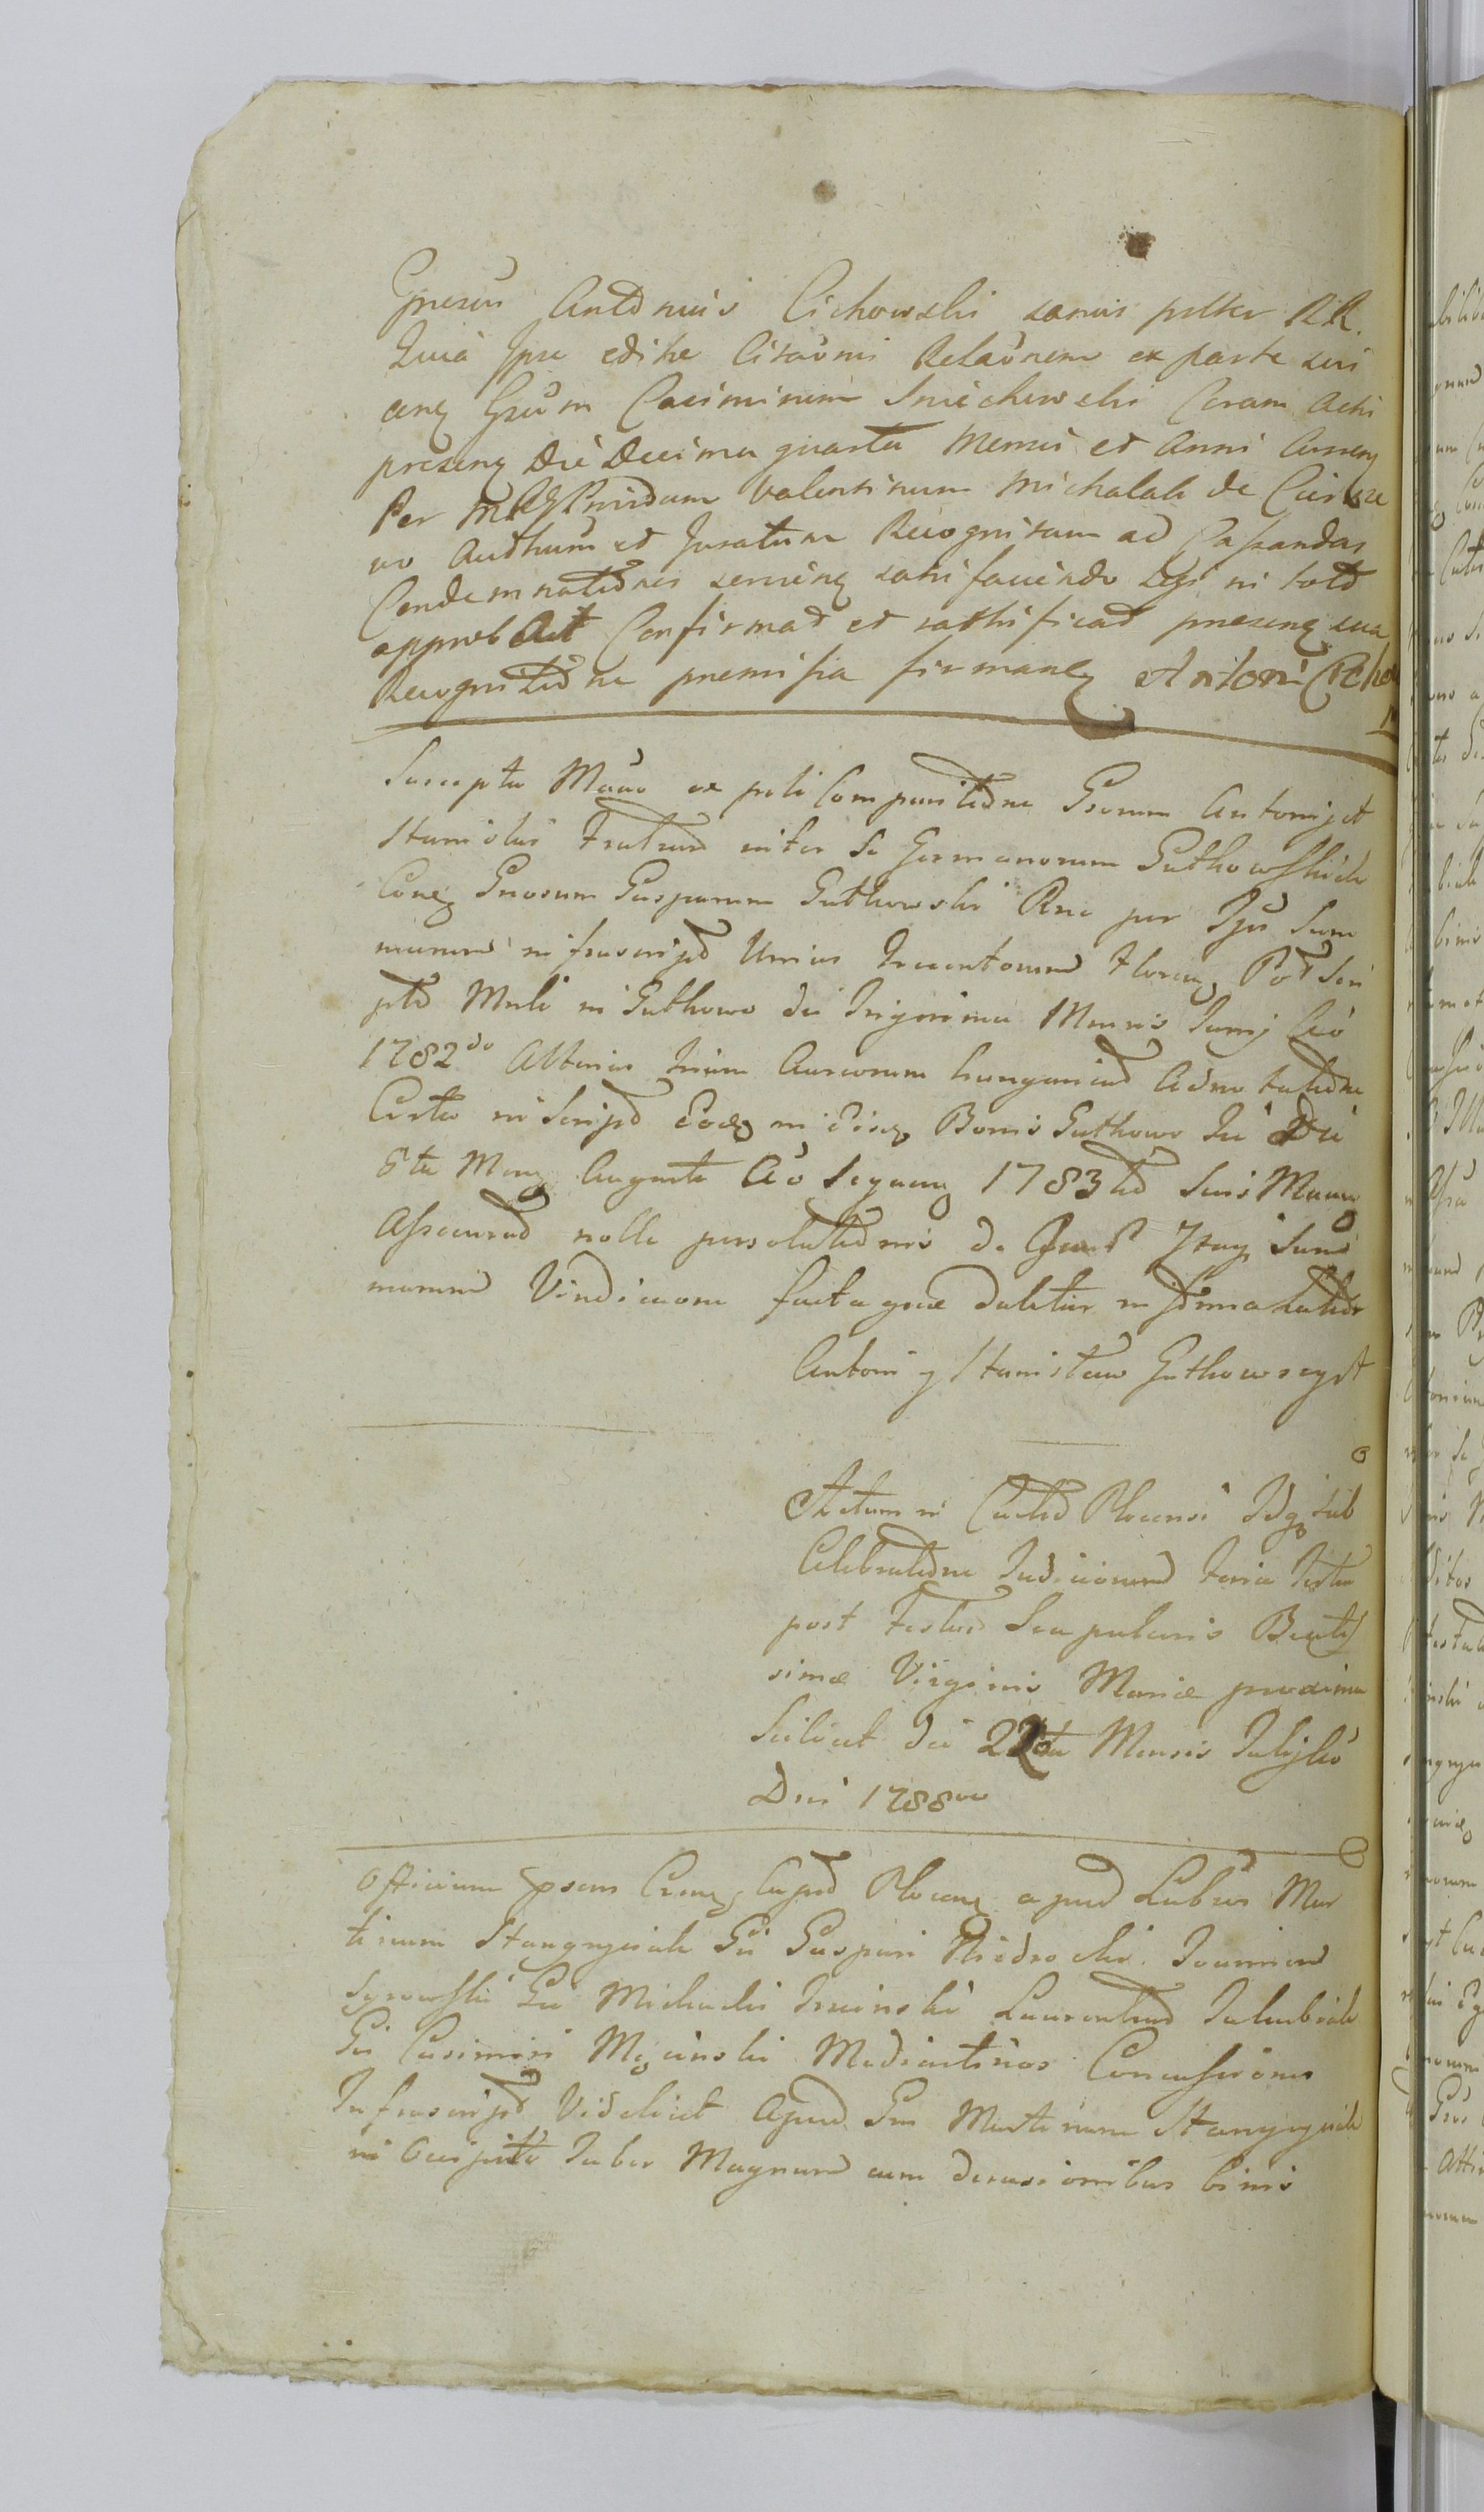 Gnesus Antonius Cichowski sanus ptter RR.
Quia Ipse edit​ae Citaōnis Relaōnem ex parte sui
anq Gsum Casimirum Smiechowski Coram Actis
presenq Die Decima quarta Mensis et Anni Currenq
Per Mstlem Providum Valentinum Michalak de
Authum et Juratum Recognitam ad Cassandas
Condemnationes servienq satisfaciendo Legi in toto
approbat Confirmat et rathificat presenq sua
Recognitione premissa firmanq Antoni Cicho
Suscepta Mano ex pol Comparitione Gsorum Antonij et
Stanislai Fratrum inter se Germanorum Guthowskich
Conq Gnosum Gasparum Guthowski Rne per Ips Sum
marum infrascript Unius Trecentorum Florenq Pol Scri
pto Mnli in Guthowo die Trigesima Mensis Junij Ao
1782do Alterius Trium Aureorum hungarical Adnotatione
Certa in Script Eodq in Eisq Bonis Guthowo In Die
6ta Menq Augusti Ao Sequenq 1783tio Suis Manuq
Assecurat nolle persolutionis de Itaq Sum
marum Vindicaom facta quae dabitur in termino latior
Antoni y Stanisław Guthowscy st
Actum in Castro Plocensi Idq sub
Celebratione Judiciorum Feria Tertia
post Festum Scapularis Beatis
simae Virginis Mariae proxima
Scilicet die 22da Mensis Julij Ao
Dni 1788vo
Officium psens Crens Capt Plocens apud Labros Mar
tinum Stangryciak Gsi Gaspari Niedrocki Joannem
Syrowski Gsi Michaelis Trzcinski Laurentium Jakubiak
Gsi Casimiri Mącinski Mediastinos Concussiones
Infrascript Videlicet Apud Gm Martinum Stangryciak
in Occipite Tuber Magnum cum decussionibus binis